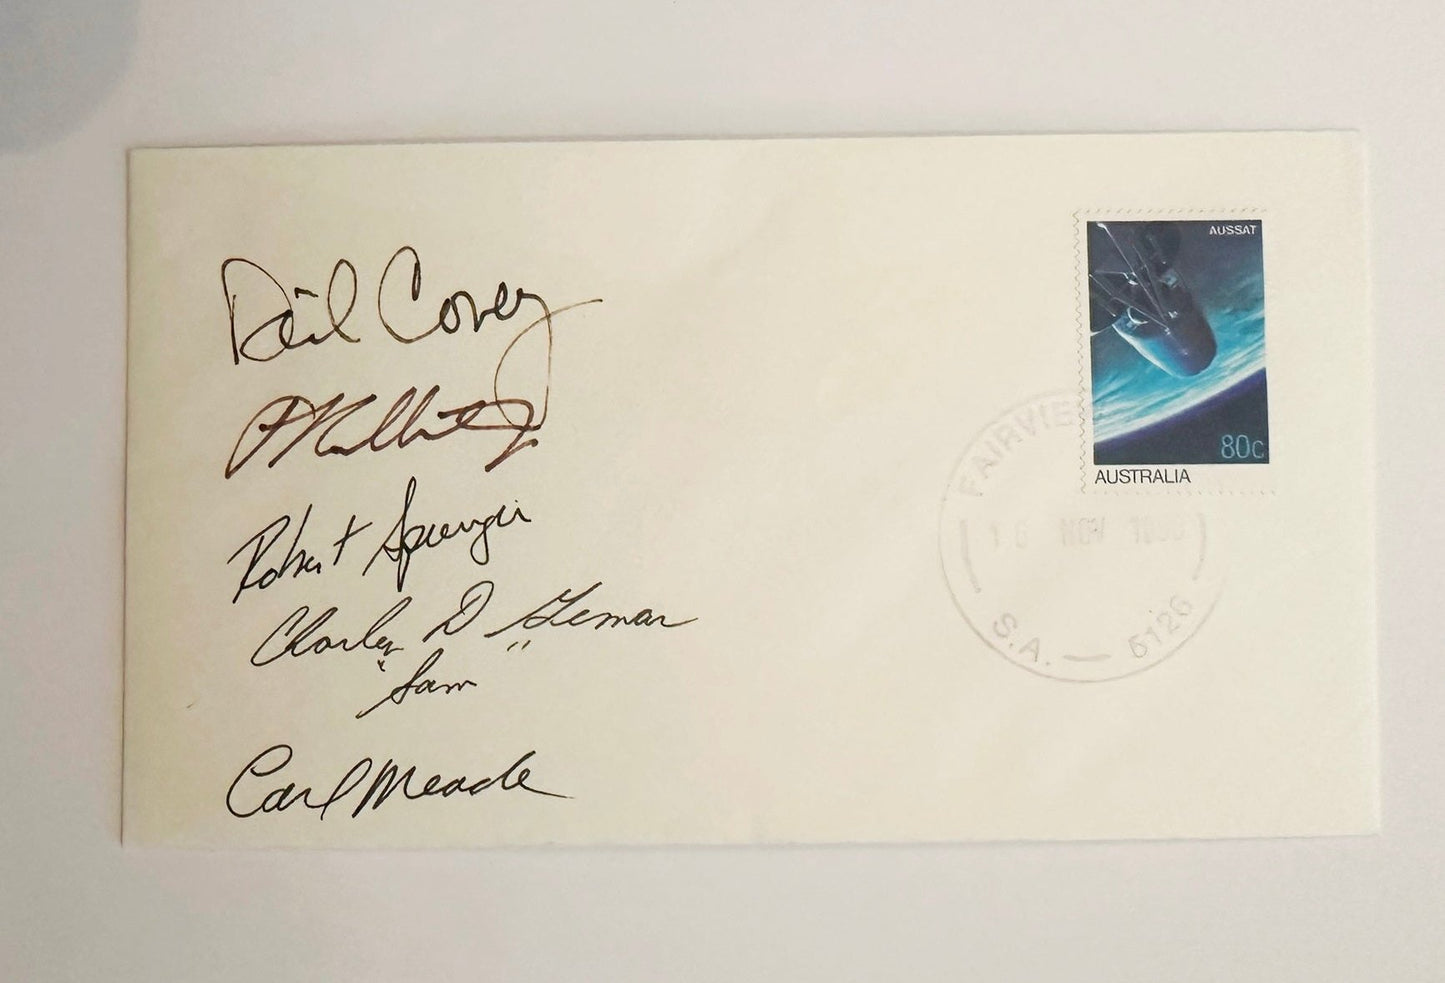 Dick Covey
Robert Springer
Charles D. Gemar
"Sam"
Carl Meade
AUSSAT
80c
AUSTRALIA
FAIRVIE
16 NOV
S.A. — 5126